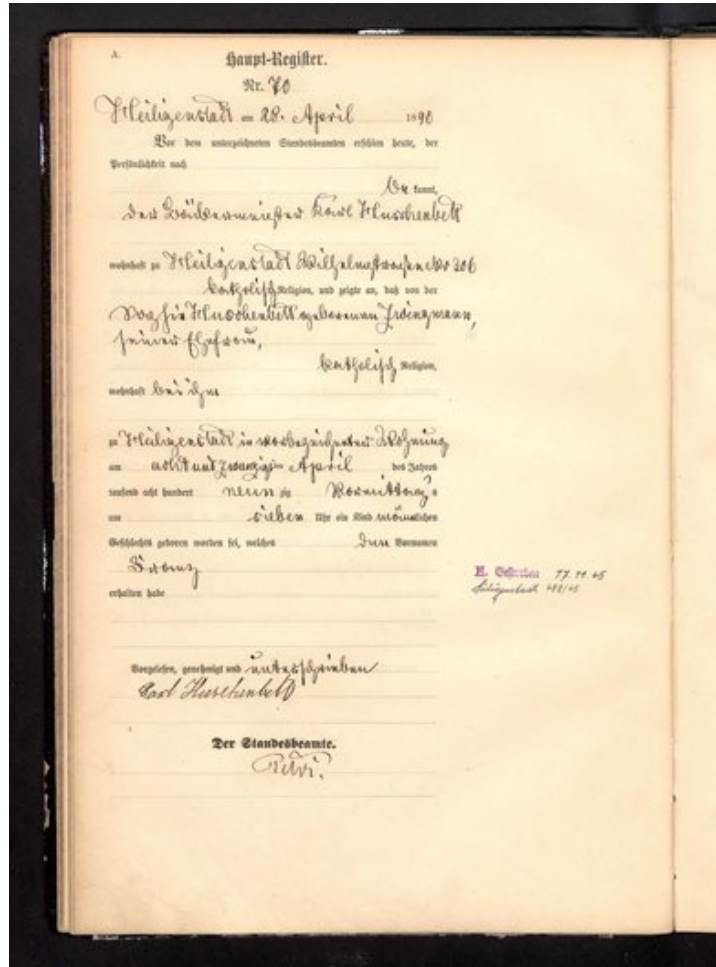 A.
Haupt-Register.
Nr. 70
Heiligenstadt am 28. April 1890
Vor dem unterzeichneten Standesbeamten erschien heute, der
Persönlichkeit nach
be kannt,
der Bäckermeister Karl Huschenbett
wohnhaft zu Heiligenstadt Wilhelmstraße No 306
katholisch Religion, und zeigte an, daß von der
Sophie Huschenbett geborenen Zwingmann,
seiner Ehefrau,
katholisch Religion,
wohnhaft bei ihm
zu Heiligenstadt in vorbezeichneter Wohnung
am acht und zwanzigsten April des Jahres
tausend acht hundert neun zig Vormittags
um sieben Uhr ein Kind männlichen
Geschlechts geboren worden sei, welches den Vornamen
Franz
erhalten habe
Vorgelesen, genehmigt und unterschrieben
Karl Huschenbett
Der Standesbeamte.
H. Gestorben 17.11.45
Heiligenstadt 498/45